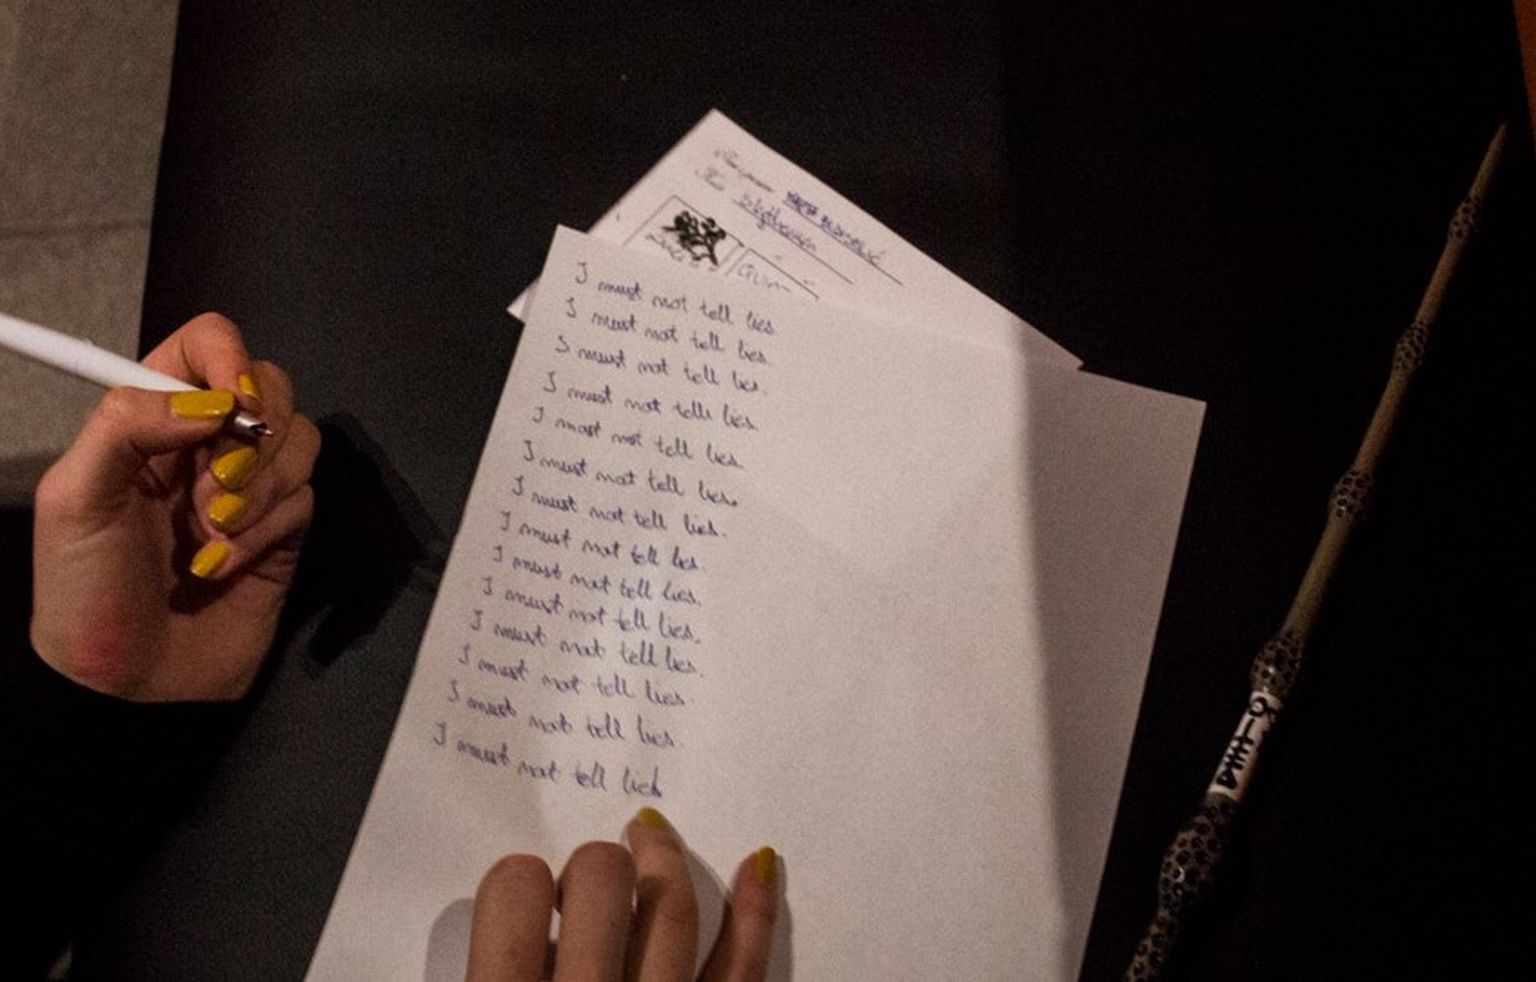 Slytherin
I must not tell lies
I must not tell lies.
I must not tell lies.
I must not tell lies.
I must not tell lies.
I must not tell lies.
I must not tell lies.
I must not tell lies.
I must not tell lies.
I must not tell lies.
I must not tell lies.
I must not tell lies.
I must not tell lies.
I must not tell lies